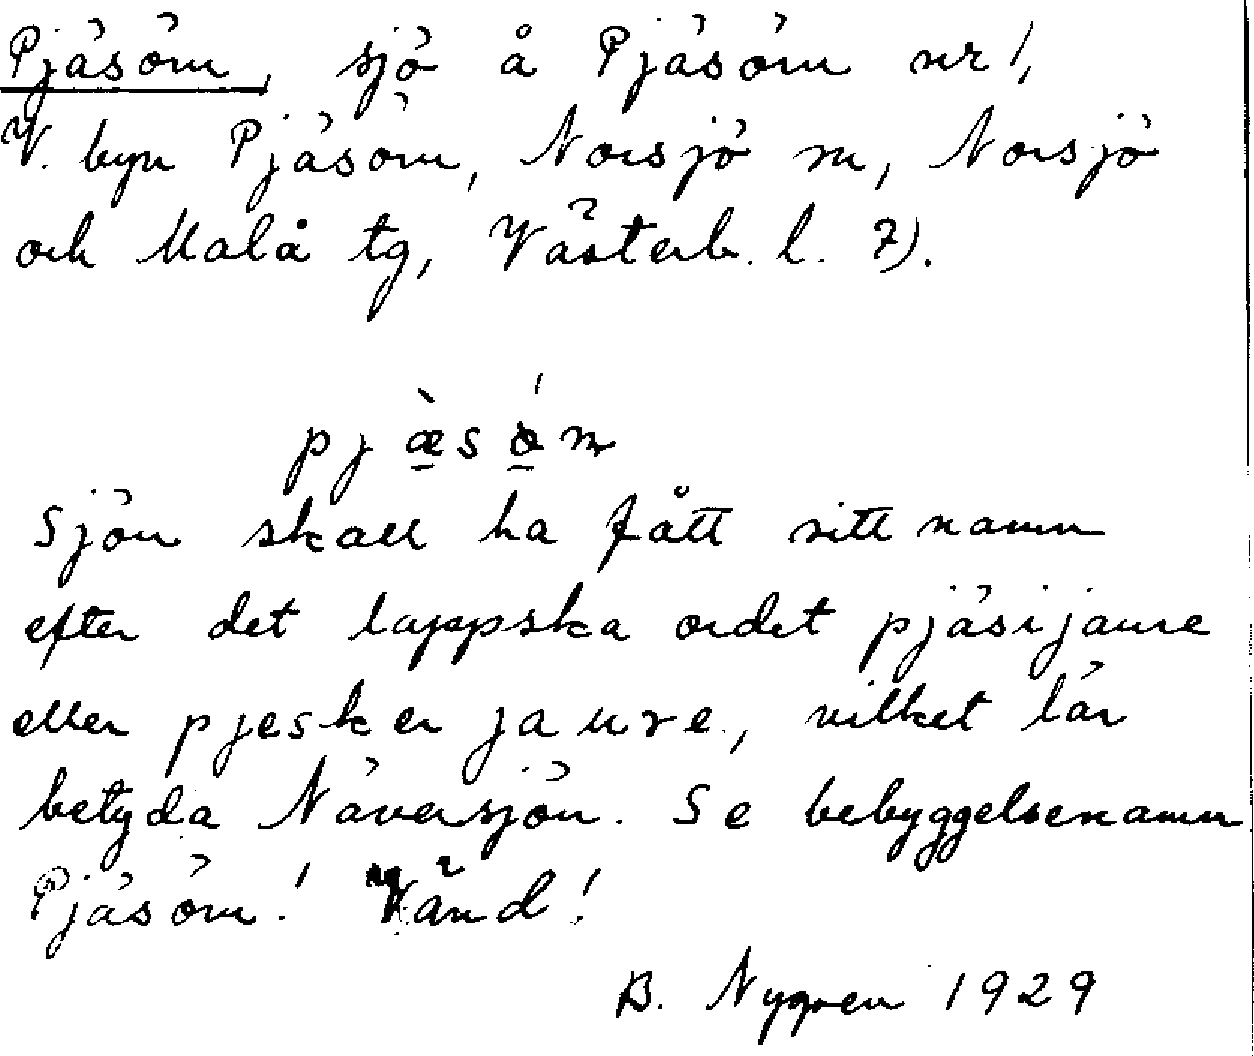 Pjäsöm, sjö å Pjäsöm nr 1,
V. byn Pjäsöm, Norsjö sn, Norsjö
och Malå tg, Västerb. l. 7).
pjæ̀sǿm
Sjön skall ha fått sitt namn
efter det lappska ordet pjäsijaure
eller pjeskerjaure, vilket lär
betyda Näversjön. Se bebyggelsenamn
Pjäsöm! Vänd!
B. Nygren 1929